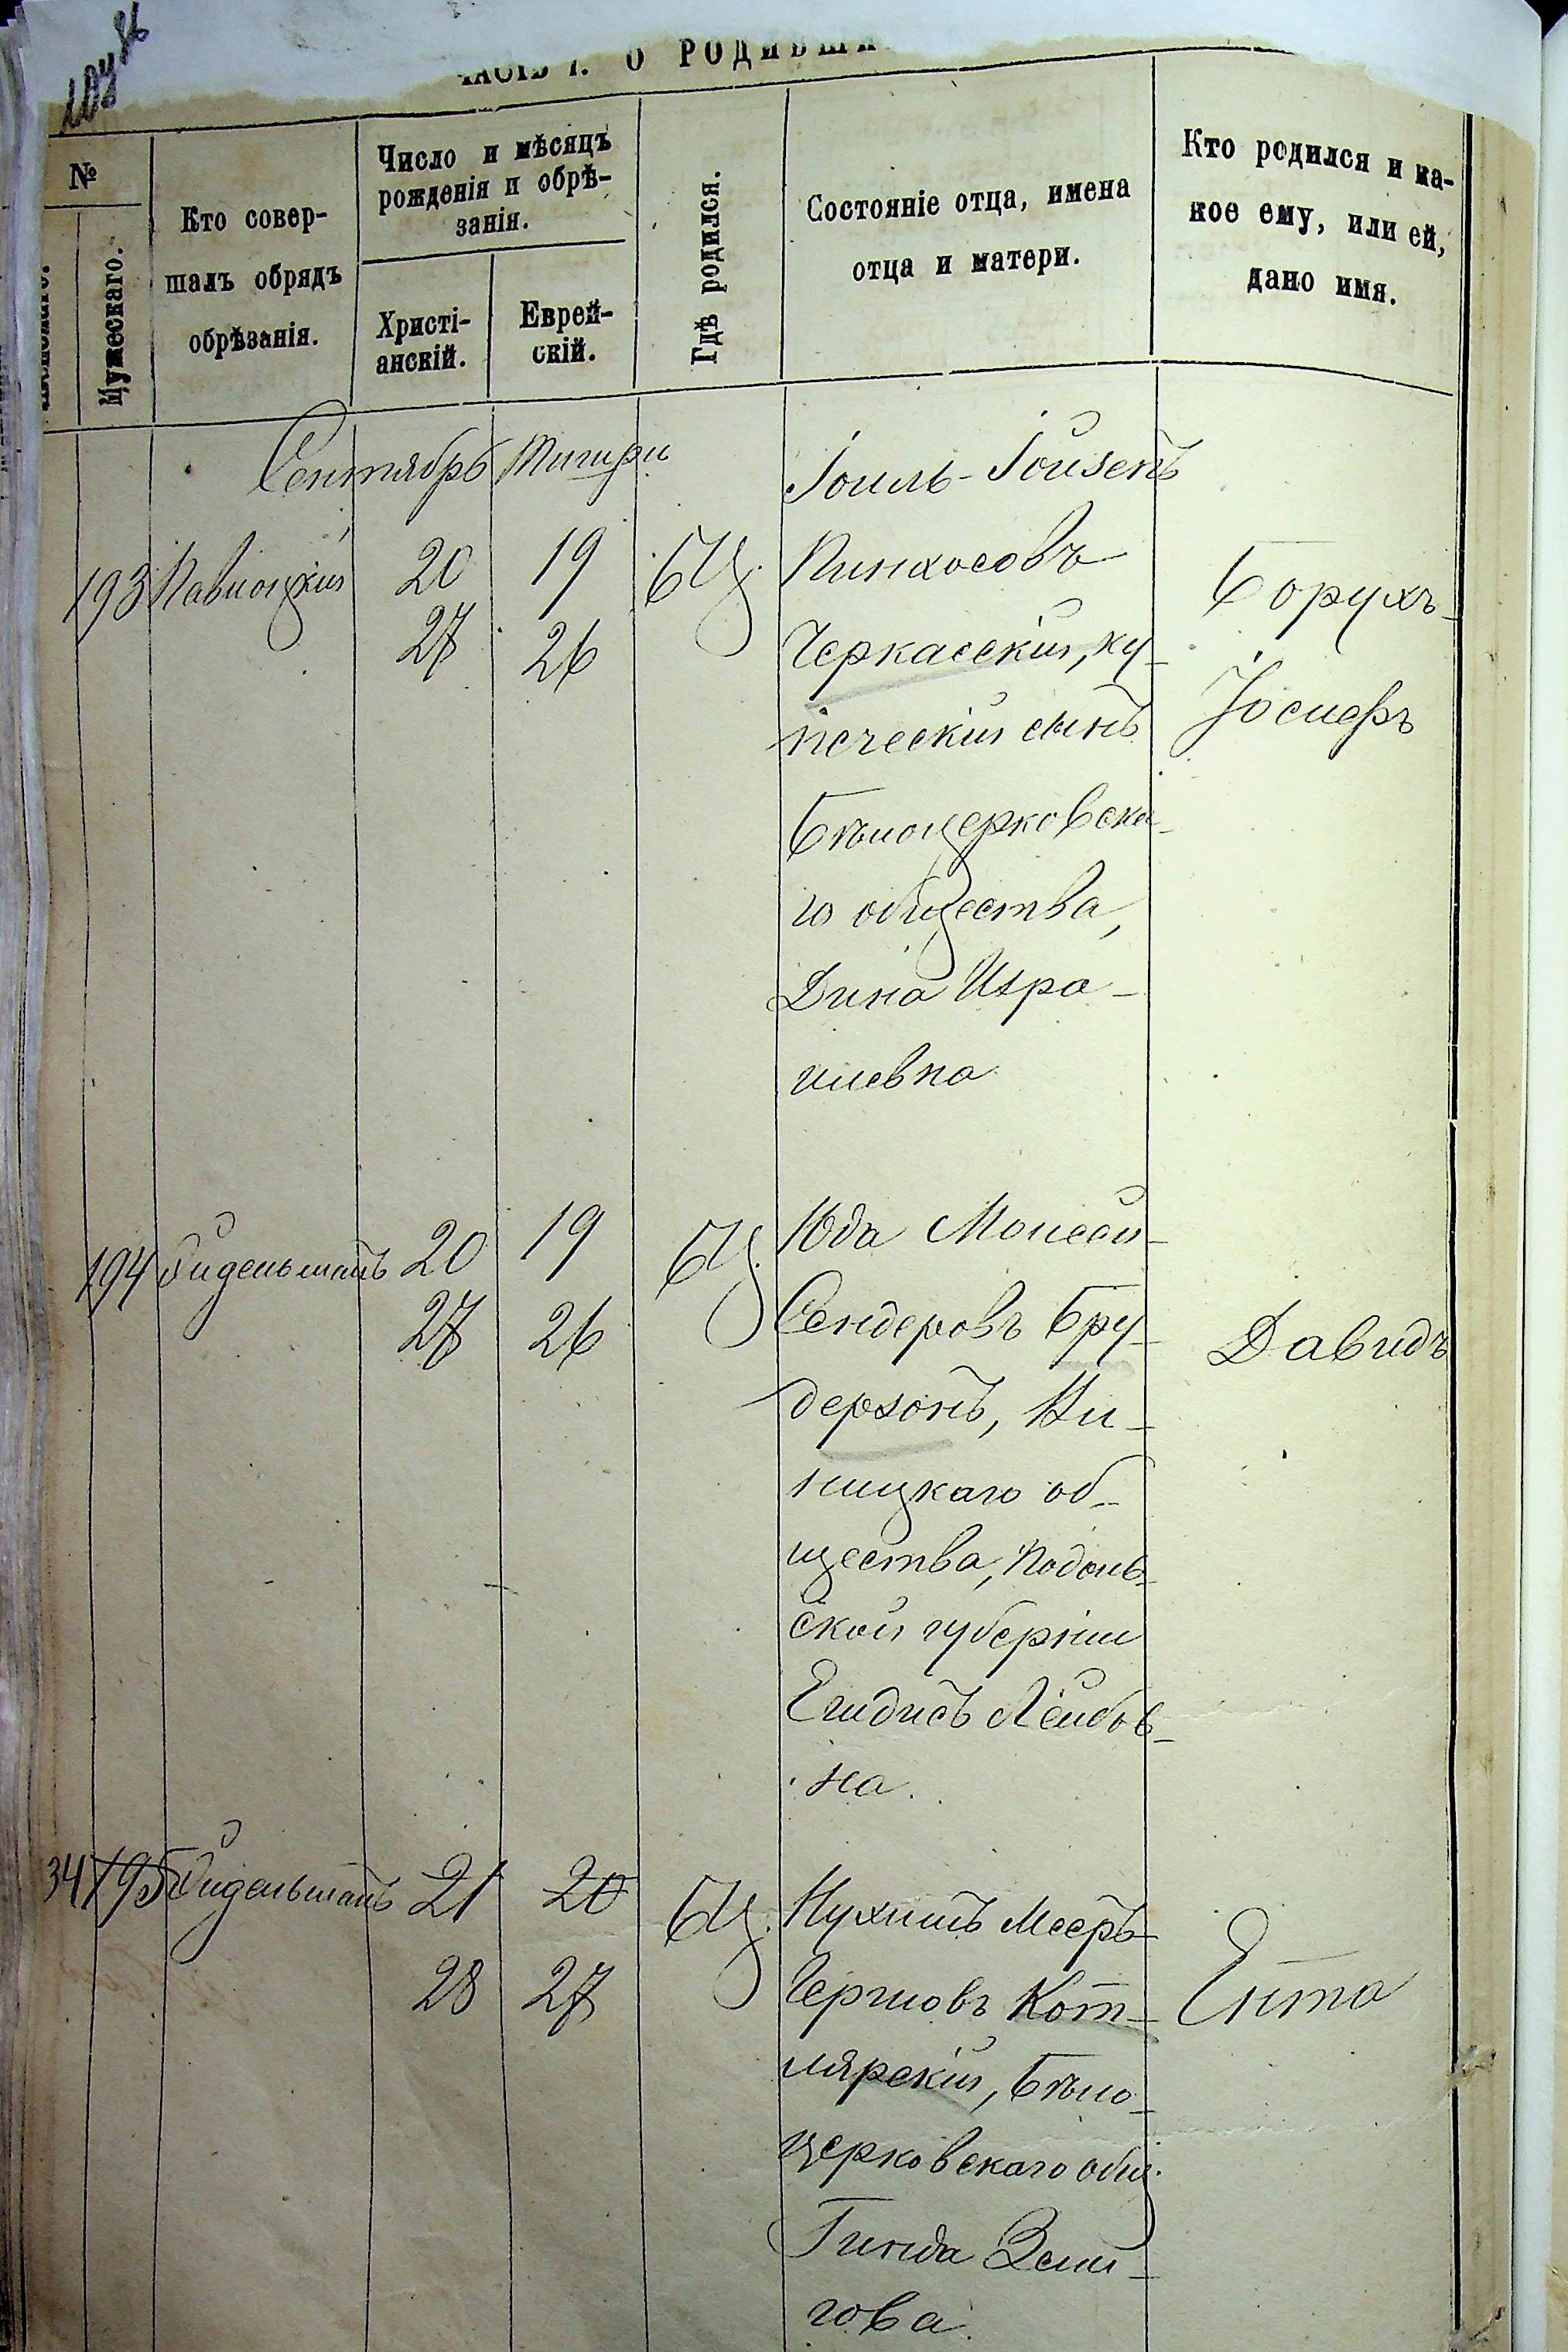 ЧАСТЬ I. О РОДИВШИ
№
Мужескаго.
Кто совер-
шалъ обрядъ
обрѣзанія.
Число и мѣсяцъ
рожденія и обрѣ-
занія.
Христі-
анскій.
Еврей-
скій.
Гдѣ родился.
Состояніе отца, имена
отца и матери.
Кто родился и ка-
кое ему, или ей,
дано имя.
Сентябрь Тишри
193 Павлоцкій 20 19 БЦ.
27 26
Іоиль-Іойзепъ
Пинхосовъ
Черкасскій, ку-
печескій сынъ
Бѣлоцерковска-
го общества,
Дина Изра-
илевна
Борухъ-
Іосифъ
194 20 19 БЦ.
27 26
Юда Моисей-
Сендеровъ Бру-
дерзонъ, Ви-
ницкаго об-
щества, Подоль-
ской губерніи
Егидисъ Лейбов-
на.
Давидъ
34 195 21 20 БЦ.
28 27
Нухимъ Мееръ-
Гершовъ Кот-
лярскій, Бѣло-
церковскаго общ.
Гинда Зели-
гова.
Ента